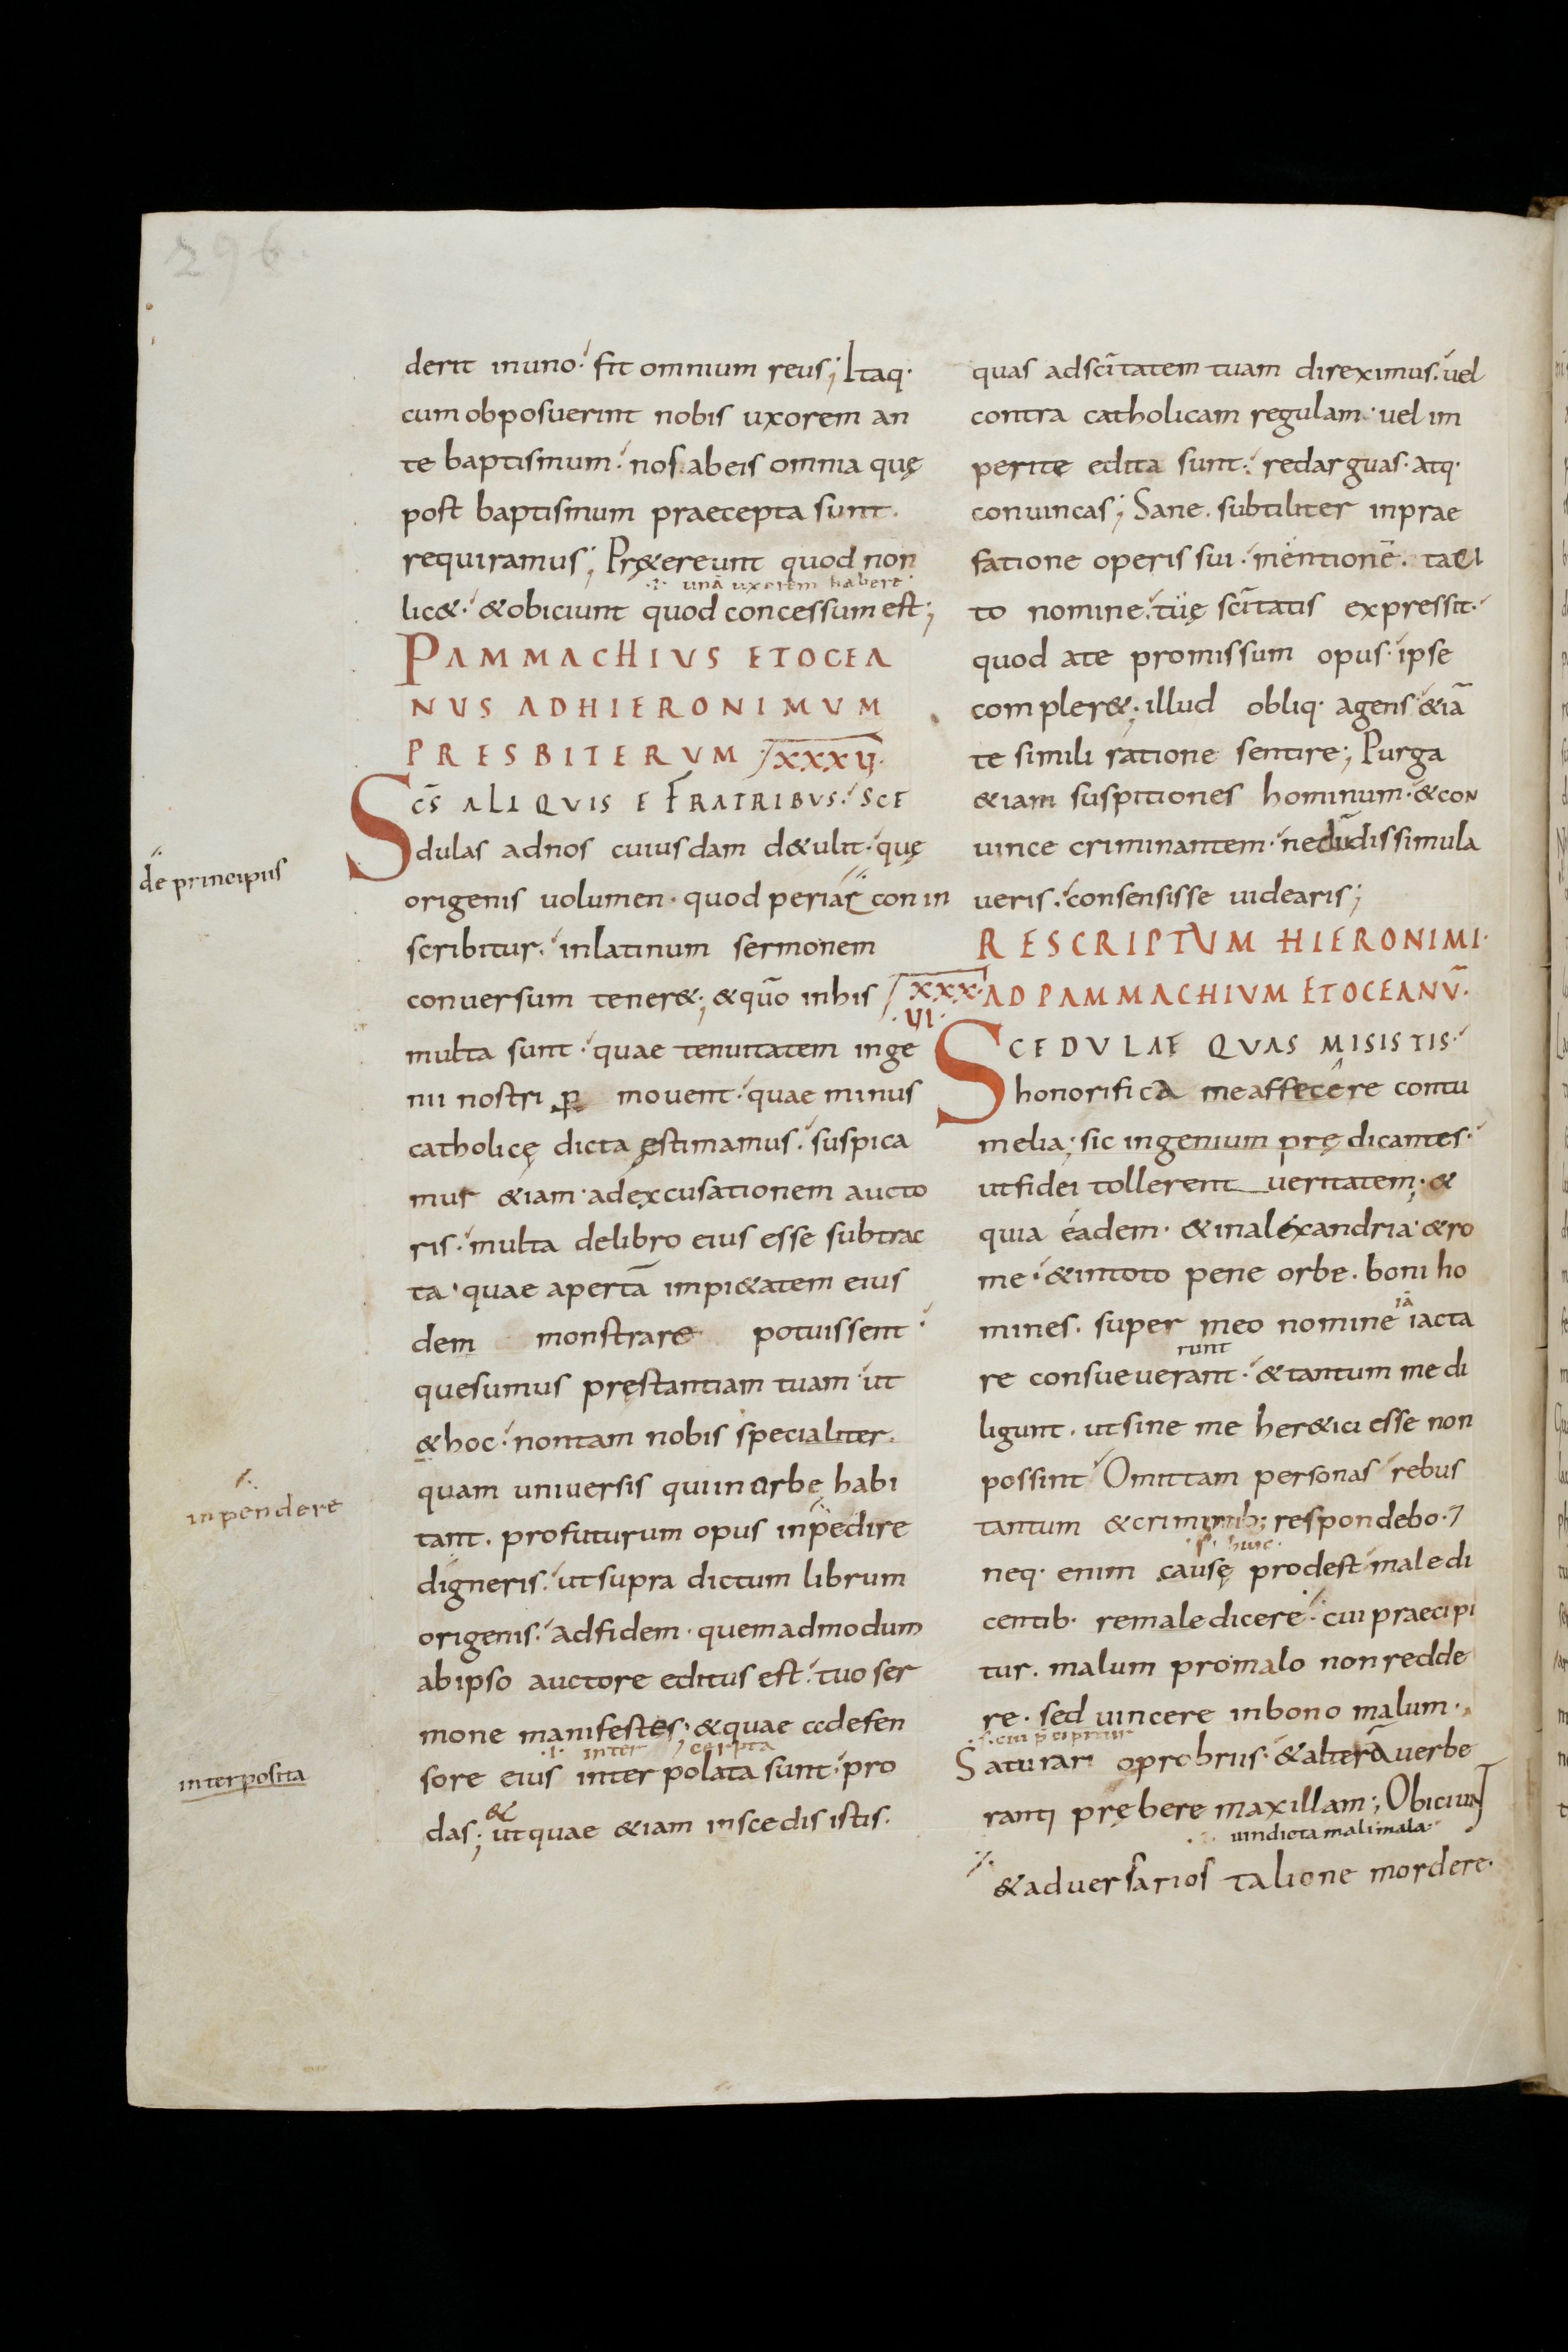 296.
derit inuno· fit omnium reus; Itaq·
cum obposuerint nobis uxorem an
te baptismum· nos abeis omnia quę
post baptismum praecepta sunt.
requiramus; Pręereunt quod non
unā uxorem habere
lic&· &obiciunt quod concessum est;
PAMMACHIUS ETOCEA
NUS ADHIERONIMUM
PRESBITERUM XXXV
SC̄S ALIQUIS E FRATRIBUS· SCE
dulas adnos cuiusdam d&ulit· quę
de principiis
origenis uolumen· quod periar con in
scribitur· inlatinum sermonem
conuersum tener&; &quō inhis
multa sunt· quae tenuitatem inge
nii nostri ꝑ mouent· quae minus
catholicę dicta ęstimamus· suspica
mur &iam· adexcusationem aucto
ris· multa delibro eius esse subtrac
ta· quae apertā impi&atem eius
dem monstrare potuissent
quesumus pręstantiam tuam ut
&hoc· nontam nobis specialiter.
quam uniuersis quiinorbe habi
inpendere
tant. profuturum opus inpedire
digneris· utsupra dictum librum
origenis· adfidem· quemadmodum
abipso auctore editus est· tuo ser
mone manifestes· &quae ccdefen
inter cerpta
interposita
sore eius inter polata sunt· pro
&
das; utquae &iam inscedis istis.
quas adsc̄itatem tuam direximus· uel
contra catholicam regulam· uel im
perite edita sunt· redarguas· atq·
conuincas; Sane. subtiliter inprae
fatione operis sui· mentionē. taci
to nomine· tuę sc̄itatis expressit·
quod ate promissum opus· ipse
compler&· illud obliq· agens &iā
te simili ratione sentire; Purga
&iam suspitiones hominum· &con
uince criminantem· nedūdissimula
ueris· consensisse uidearis;
RESCRIPTUM HIERONIMI·
XXX· ADPAMMACHIUM ETOCEANŪ·
VI·
SCEDULAE QUAS MISISTIS·
honorifica meaffecere contu
melia; sic ingenium prędicantes·
utfidei tollerent ueritatem· &
quia eadem· &inalexandria· &ro
me· &intoto pene orbe. boni ho
iā
mines. super meo nomine iacta
runt
re consueuerant· &tantum me di
ligunt. utsine me her&ici esse non
possint Omittam personas rebus
tantum &criminib; respondebo·
huic·
neq· enim causę prodest maledi
centib· remaledicere· cui praecipi
tur. malum promalo nonredde
re· sed uincere inbono malum·
Saturari oprobriis· &alterā uerbe
ranti prębere maxillam; Obiciunt
uindicta mali mala
&aduersarios talione mordere·